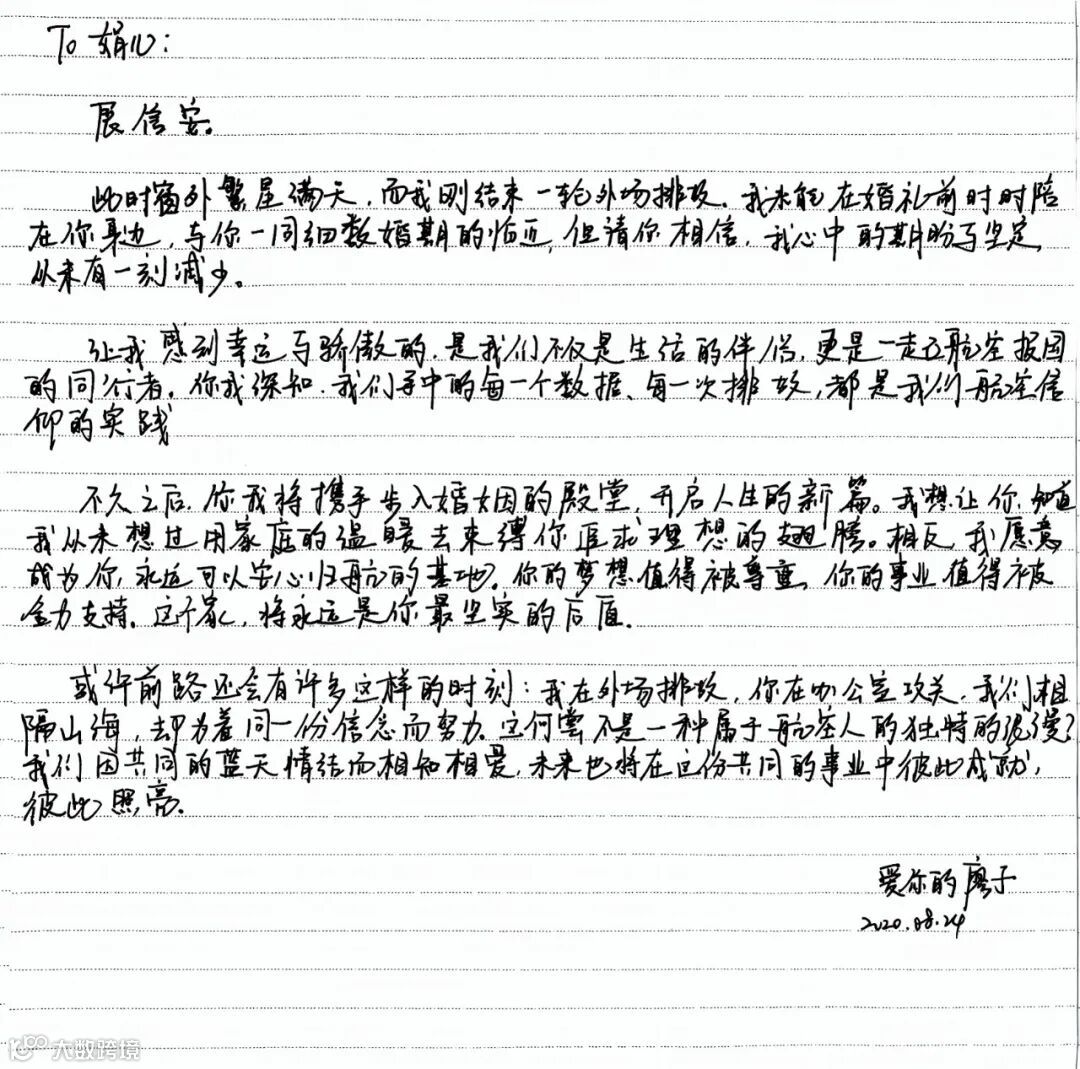 To 娟儿：
展信安。
此时窗外繁星满天，而我刚结束一轮外场排故。我未能在婚礼前时时陪
在你身边，与你一同细数婚期的临近，但请你相信，我心中的期盼与坚定，
从未有一刻减少。
让我感到幸运与骄傲的，是我们不仅是生活的伴侣，更是一走航空报国
的同行者。你我深知，我们手中的每一个数据、每一次排故，都是我们航空信
仰的实践
不久之后，你我将携手步入婚姻的殿堂，开启人生的新篇。我想让你知道
我从未想过用家庭的温暖去束缚你追求理想的翅膀。相反，我愿意
成为你，永远可以安心归航的基地。你的梦想值得被尊重，你的事业值得被
全力支持。这个家，将永远是你最坚实的后盾。
或许前路还会有许多这样的时刻：我在外场排故，你在办公室攻关，我们相
隔山海，却为着同一份信念而努力。这何尝不是一种属于航空人的独特的浪漫？
我们因共同的蓝天情结而相知相爱，未来也将在这份共同的事业中彼此成就，
彼此照亮。
爱你的廖子
2020.08.24
大数跨境